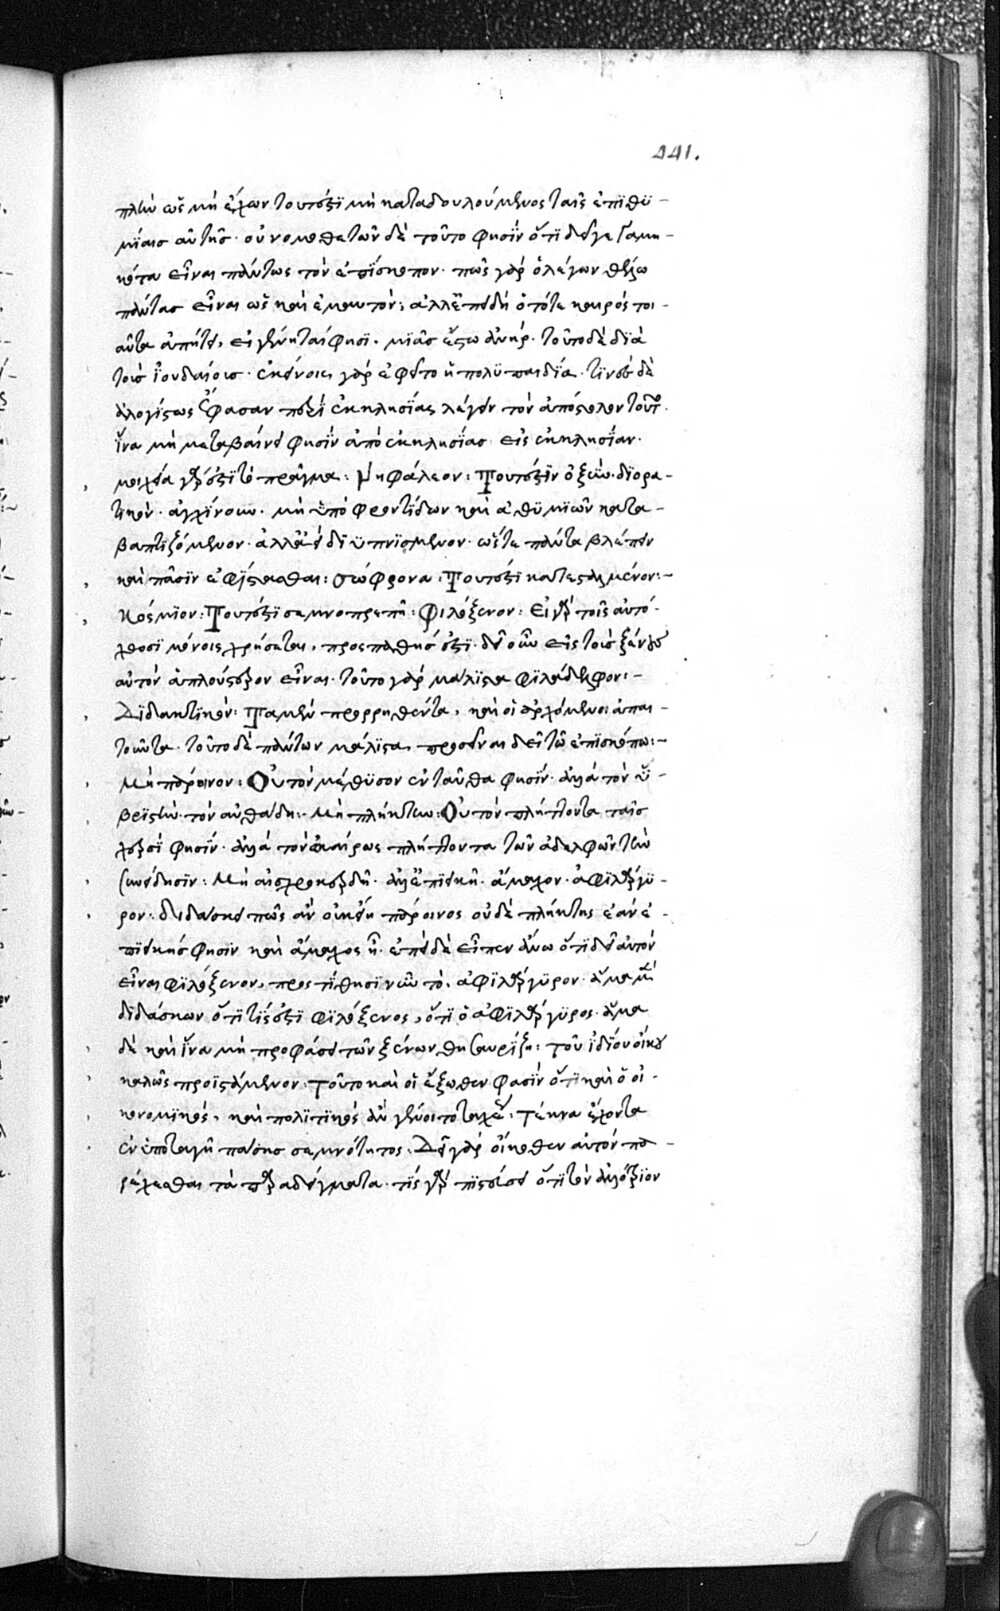 441.
πλὴν ὡς μὴ ἔχων τουτέστι μὴ καταδουλούμενος ταῖς ἐπιθυ-
μίαις αὐτῆς· οὐ νομοθετῶν δὲ τοῦτο φησὶν ὅτι δεῖ γεγαμη-
κότα εἶναι πάντως τὸν ἐπίσκοπον· πῶς γὰρ ὁ λέγων θέλω
πάντας εἶναι ὡς καὶ ἐμαυτόν: ἀλλ' ἐπειδὴ ὁ τότε καιρὸς τοι-
αῦτα ἀπῄτει, εἰ γένηται φησι· μιᾶς ἔστω ἀνήρ· τοῦτο δὲ διὰ
τοὺς ἰουδαίους· ἐκείνοις γὰρ ἐφεῖτο ἡ πολυπαιδία· τινὲς δὲ
ἀλογίστως ἔφασαν περὶ ἐκκλησίας λέγειν τὸν ἀπόστολον τοῦτο·
ἵνα μὴ μεταβαίνει φησὶν ἀπὸ ἐκκλησίας εἰς ἐκκλησίαν·
μοιχεία γάρ ἐστι τὸ πρᾶγμα: Νηφάλεον: Τουτέστιν ὀξὺν· διορα-
τικόν· ἀγχίνουν· μὴ ὑπὸ φροντίδων καὶ ἀθυμιῶν κατα-
βαπτιζόμενον· ἀλλ' ἀεὶ διυπνισμένον· ὥστε πάντα βλέπειν
καὶ πᾶσιν ἐφίστασθαι: σώφρονα: Τουτέστι κατεσταλμένον:-
Κόσμιον: Τουτέστι σεμνοπρεπῆ: Φιλόξενον: Εἰ γὰρ τοῖς αὐτό-
χθοσι μόνοις χρήσεται, προσπαθής ἐστι· δεῖ οὖν εἰς τοὺς ξένους
αὐτὸν ἁπλούστερον εἶναι· τοῦτο γὰρ μάλιστα φιλάδελφον:-
Διδακτικόν: Τὰ μὲν προρρηθέντα, καὶ οἱ ἀρχόμενοι ἀπαι-
τοῦνται· τοῦτο δὲ πάντων μάλιστα προσεῖναι δεῖ τῷ ἐπισκόπῳ:-
Μὴ πάροινον: Οὐ τὸν μέθυσον ἐνταῦθα φησίν· ἀλλὰ τὸν ὑ-
βριστὴν· τὸν αὐθάδη:- Μὴ πλήκτην: Οὐ τὸν πλήττοντα ταῖς
χερσί φησίν· ἀλλὰ τὸν ἀκαίρως πλήττοντα τῶν ἀδελφῶν τὴν
συνείδησιν: Μὴ αἰσχροκερδῆ· ἀλλ' ἐπιεικῆ· ἄμαχον· ἀφιλάργυ-
ρον: διδάσκει πῶς ἂν οἰκείη πάροινος οὐδὲ πλήκτης ἐὰν ἐ-
πιεικής φησιν καὶ ἄμαχος ᾖ· ἐπεὶ δὲ εἶπεν ἄνω ὅτι δεῖ αὐτὸν
εἶναι φιλόξενον, προστίθησι νῦν τὸ, ἀφιλάργυρον· ἅμα μὲν
διδάσκων ὅτι τίς ἐστι φιλόξενος, ὅτι ὁ ἀφιλάργυρος· ἅμα
δὲ καὶ ἵνα μὴ προφάσει τῶν ξένων θησαυρίζῃ: τοῦ ἰδίου οἴκου
καλῶς προϊστάμενον: τοῦτο καὶ οἱ ἔξωθεν φασὶν ὅτι καὶ ὁ οἰ-
κονομικὸς, καὶ πολιτικὸς ἂν γένοιτο ταχέως: τέκνα ἔχοντα
ἐν ὑποταγῇ πάσης σεμνότητος: Δεῖ γὰρ οἴκοθεν αὐτὸν πα-
ρέχεσθαι τὰ παραδείγματα· τίς γὰρ πιστεύσει ὅτι τὸν ἀλλότριον